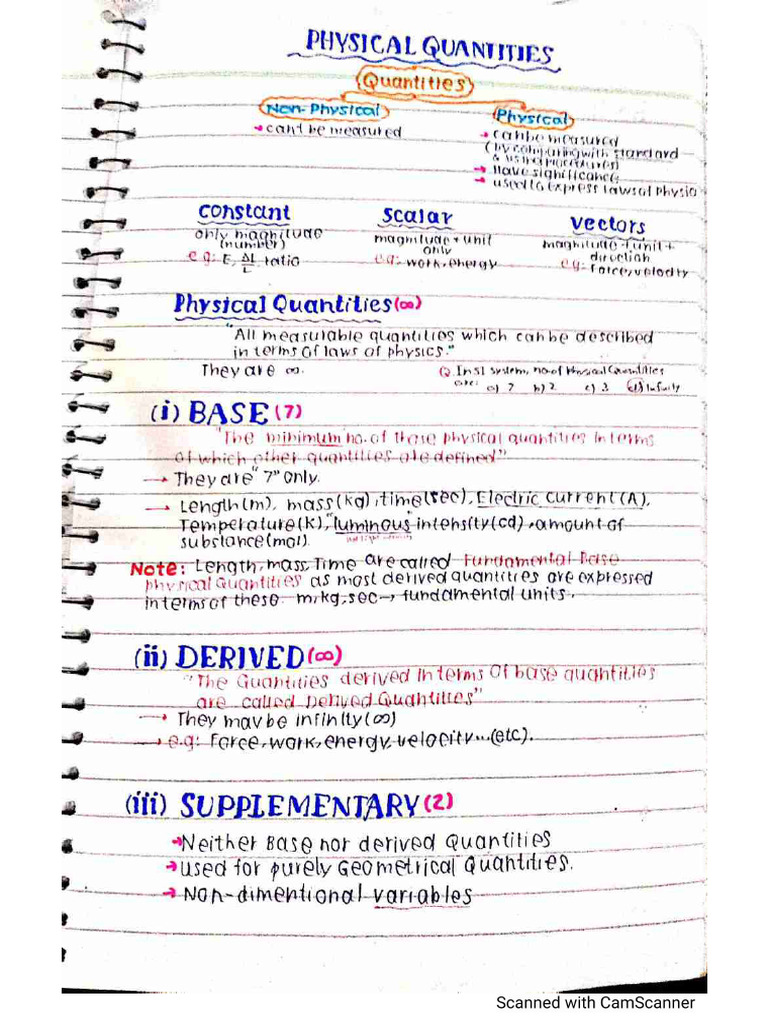 PHYSICAL QUANTITIES
Quantities
Non-Physical
Physical
→ can't be measured
→ can be measured
(by comparing with standard
& using procedures)
→ Have significance
→ used to express laws of Physic
constant
only magnitude
(number)
e.g: ε, ΔL/L, ratio
scalar
magnitude + unit
only
e.g: work, energy
vectors
magnitude + unit +
direction
e.g: force, velocity
Physical Quantities (∞)
"All measurable quantities which can be described
in terms of laws of physics."
They are ∞.
Q. In SI system, no. of Physical Quantities
are: a) 7 b) 2 c) 3 d) Infinity
(i) BASE (7)
"The minimum no. of those physical quantities in terms
of which other quantities are defined"
→ They are "7" only.
→ Length(m), mass(kg), time(sec), Electric current(A),
Temperature(K), "luminous intensity(cd), amount of
substance(mol).
Note: Length, mass, Time are called Fundamental Base
physical Quantities as most derived quantities are expressed
in terms of these m, kg, sec → fundamental units.
(ii) DERIVED (∞)
"The Quantities derived in terms of base quantities
are called Derived Quantities"
→ They may be infinity (∞)
→ e.g: Force, work, energy, velocity...(etc).
(iii) SUPPLEMENTARY (2)
→ Neither Base nor derived Quantities
→ used for purely Geometrical Quantities.
→ Non-dimentional variables
Scanned with CamScanner